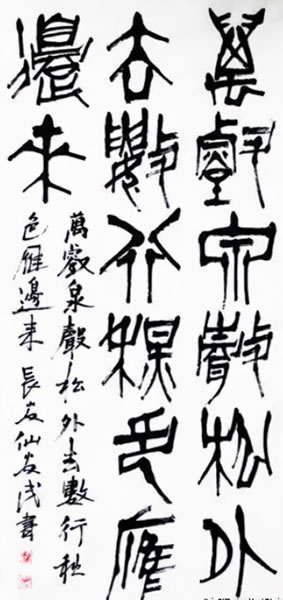 萬叡泉聲松外
去數行秋色雁
邊來
萬叡泉聲松外去數行秋
色雁邊來 長 仙 書